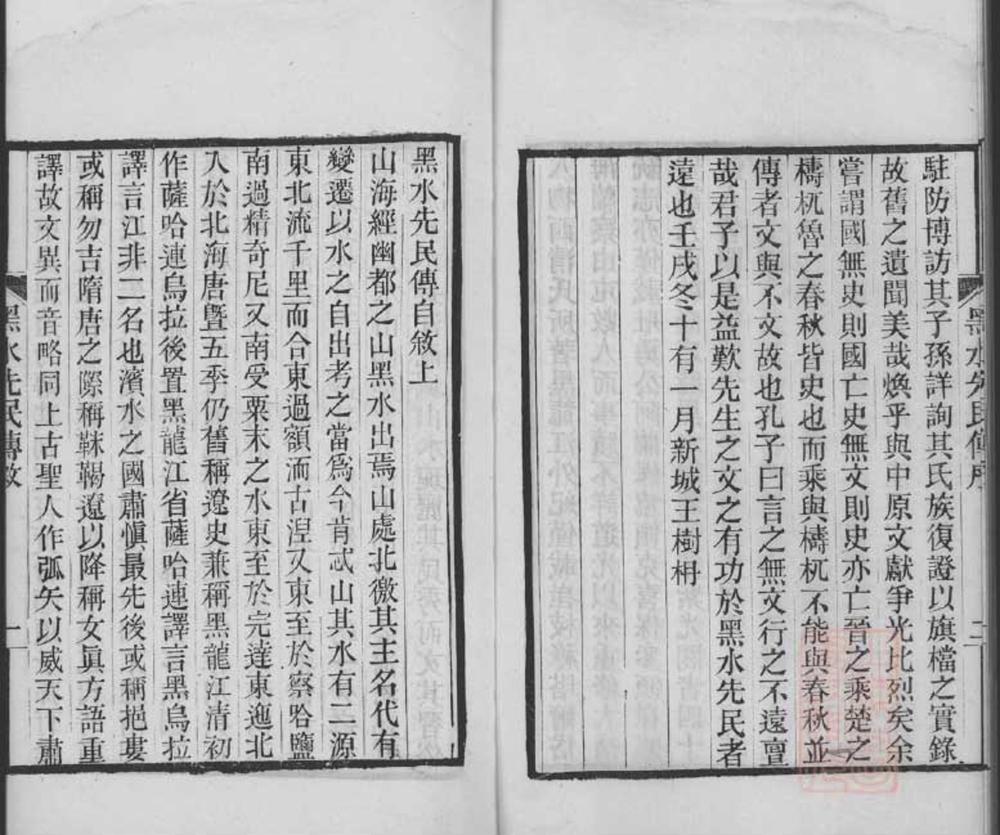 駐防博訪其子孫詳詢其氏族復證以旗檔之實錄
故舊之遺聞美哉煥乎與中原文獻爭光比烈矣余
嘗謂國無史則國亡史無文則史亦亡晉之乘楚之
檮杌魯之春秋皆史也而乘與檮杌不能與春秋並
傳者文與不文故也孔子曰言之無文行之不遠亶
哉君子以是益歎先生之文之有功於黑水先民者
遠也壬戌冬十有一月新城王樹枏
黑水先民傳序
二
黑水先民傳自敘上
山海經幽都之山黑水出焉山處北徼其主名代有
變遷以水之自出考之當爲今肯忒山其水有二源
東北流千里而合東過額洏古湼又東至於察哈鹽
南過精奇尼又南受粟末之水東至於完達東迤北
入於北海唐曁五季仍舊稱遼史兼稱黑龍江清初
作薩哈連烏拉後置黑龍江省薩哈連譯言黑烏拉
譯言江非二名也濱水之國肅愼最先後或稱挹婁
或稱勿吉隋唐之際稱靺鞨遼以降稱女眞方語重
譯故文異而音略同上古聖人作弧矢以威天下肅
黑水先民傳敘
一